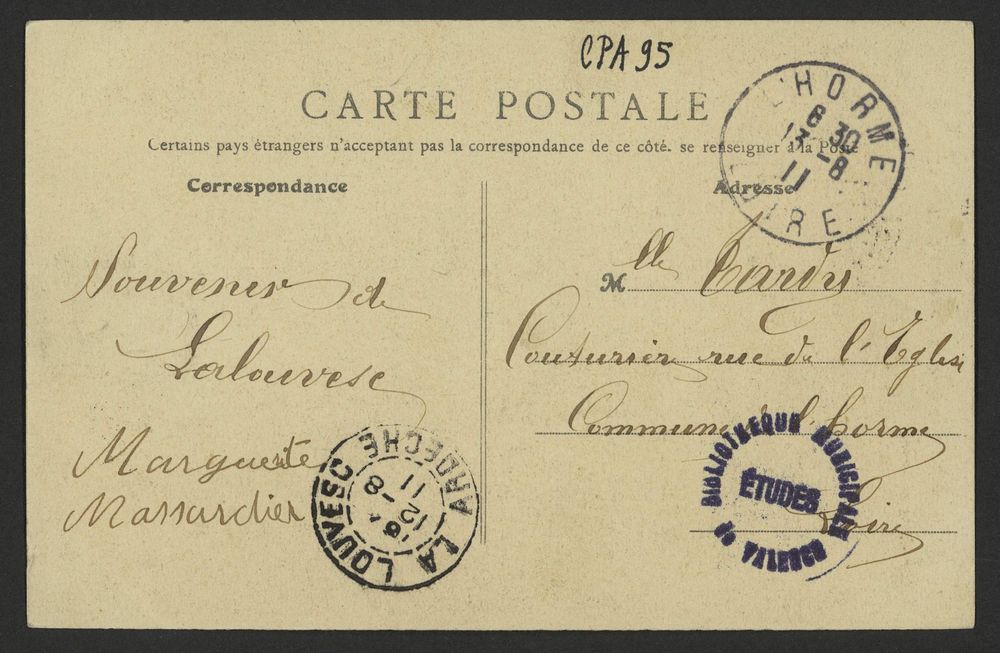 CPA 95
CARTE POSTALE
Certains pays étrangers n'acceptant pas la correspondance de ce côté. se renseigner à la Poste
Correspondance
Adresse
L'HORME
6 30
13 -8
11
LOIRE
Souvenir de
Lalouvese
Marguerite
Massardier
Mlle Tardy
Couturière rue de l'Eglise
Commune l'horme
Loire
LA LOUVESC
ARDECHE
12 -8
11
BIBLIOTHEQUE MUNICIPALE
ÉTUDES
de VALENCE